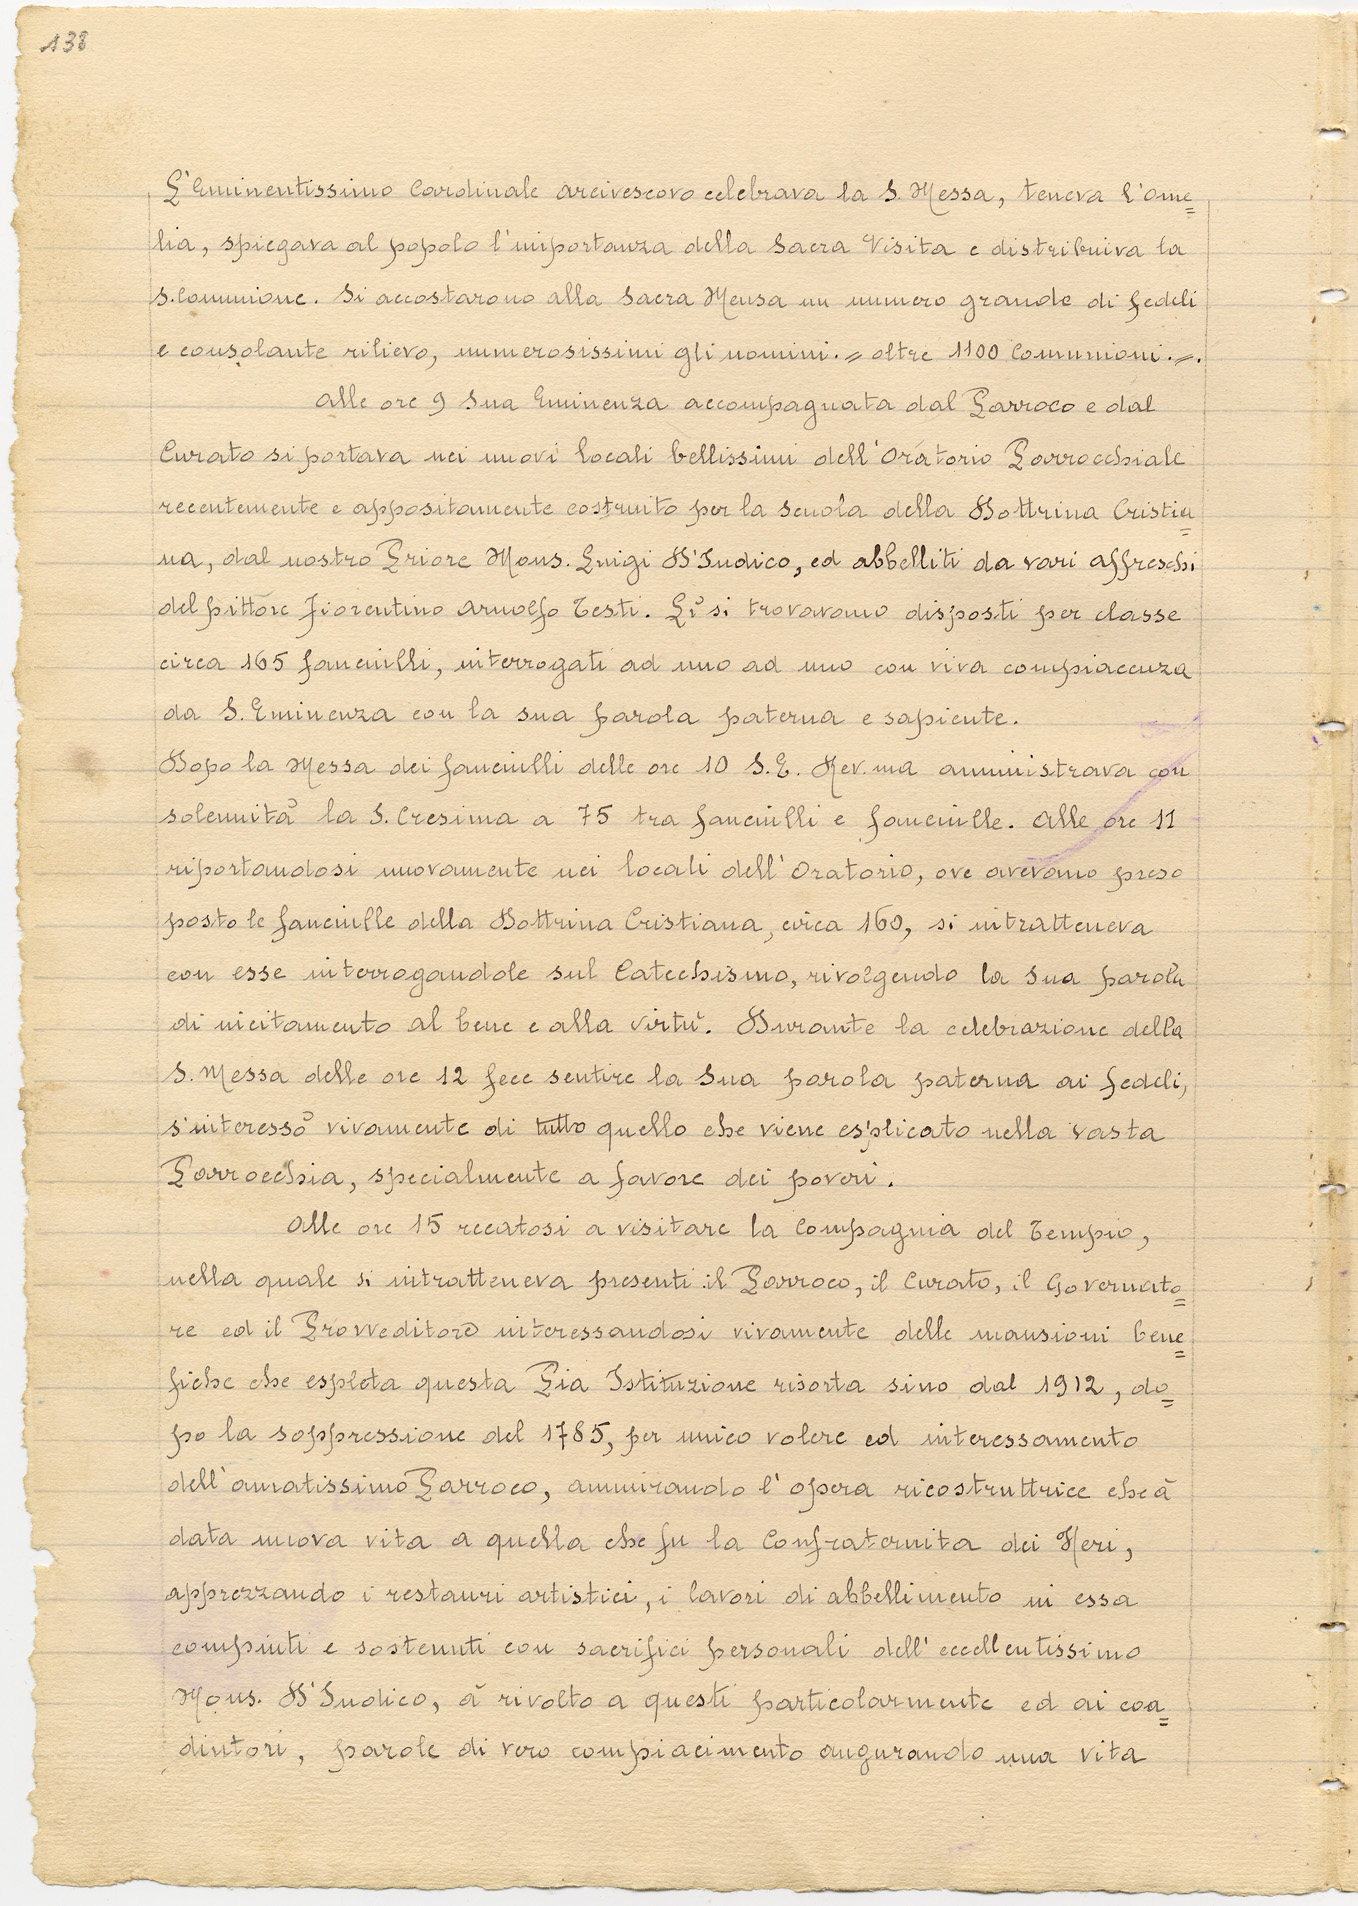 138
L'Eminentissimo Cardinale Arcivescovo celebrava la S. Messa, teneva l'Ome=
lia, spiegava al popolo l'importanza della Sacra Visita e distribuiva la
S. Comunione. Si accostarono alla Sacra Mensa un numero grande di fedeli
e consolante rilievo, numerosissimi gli uomini. = oltre 1100 Comunioni. =.
Alle ore 9 Sua Eminenza accompagnata dal Parroco e dal
Curato si portava nei nuovi locali bellissimi dell'Oratorio Parrocchiale
recentemente e appositamente costruito per la scuola della Dottrina Cristia=
na, dal nostro Priore Mons. Luigi D'Indico, ed abbelliti da vari affreschi
del pittore Fiorentino Arnolfo Testi. Lì si trovavano disposti per classe
circa 165 fanciulli, interrogati ad uno ad uno con viva compiacenza
da S. Eminenza con la sua parola paterna e sapiente.
Dopo la Messa dei fanciulli delle ore 10 S. E. Rev.ma amministrava con
solennità la S. Cresima a 75 tra fanciulli e fanciulle. Alle ore 11
riportandosi nuovamente nei locali dell'Oratorio, ove avevano preso
posto le fanciulle della Dottrina Cristiana, circa 160, si intratteneva
con esse interrogandole sul Catechismo, rivolgendo la Sua parola
di incitamento al bene e alla virtù. Durante la celebrazione della
S. Messa delle ore 12 fece sentire la Sua parola paterna ai fedeli,
s'interessò vivamente di tutto quello che viene esplicato nella vasta
Parrocchia, specialmente a favore dei poveri.
Alle ore 15 recatosi a visitare la Compagnia del Tempio,
nella quale si intratteneva presenti il Parroco, il Curato, il Governato=
re ed il Provveditore interessandosi vivamente delle mansioni bene=
fiche che espleta questa Pia Istituzione risorta sino dal 1912, do=
po la soppressione del 1785, per unico volere ed interessamento
dell'amatissimo Parroco, ammirando l'opera ricostruttrice che à
data nuova vita a quella che fu la Confraternita dei Neri,
apprezzando i restauri artistici, i lavori di abbellimento in essa
compiuti e sostenuti con sacrifici personali dell'eccellentissimo
Mons. D'Indico, à rivolto a questi particolarmente ed ai coa=
diutori, parole di vero compiacimento augurando una vita